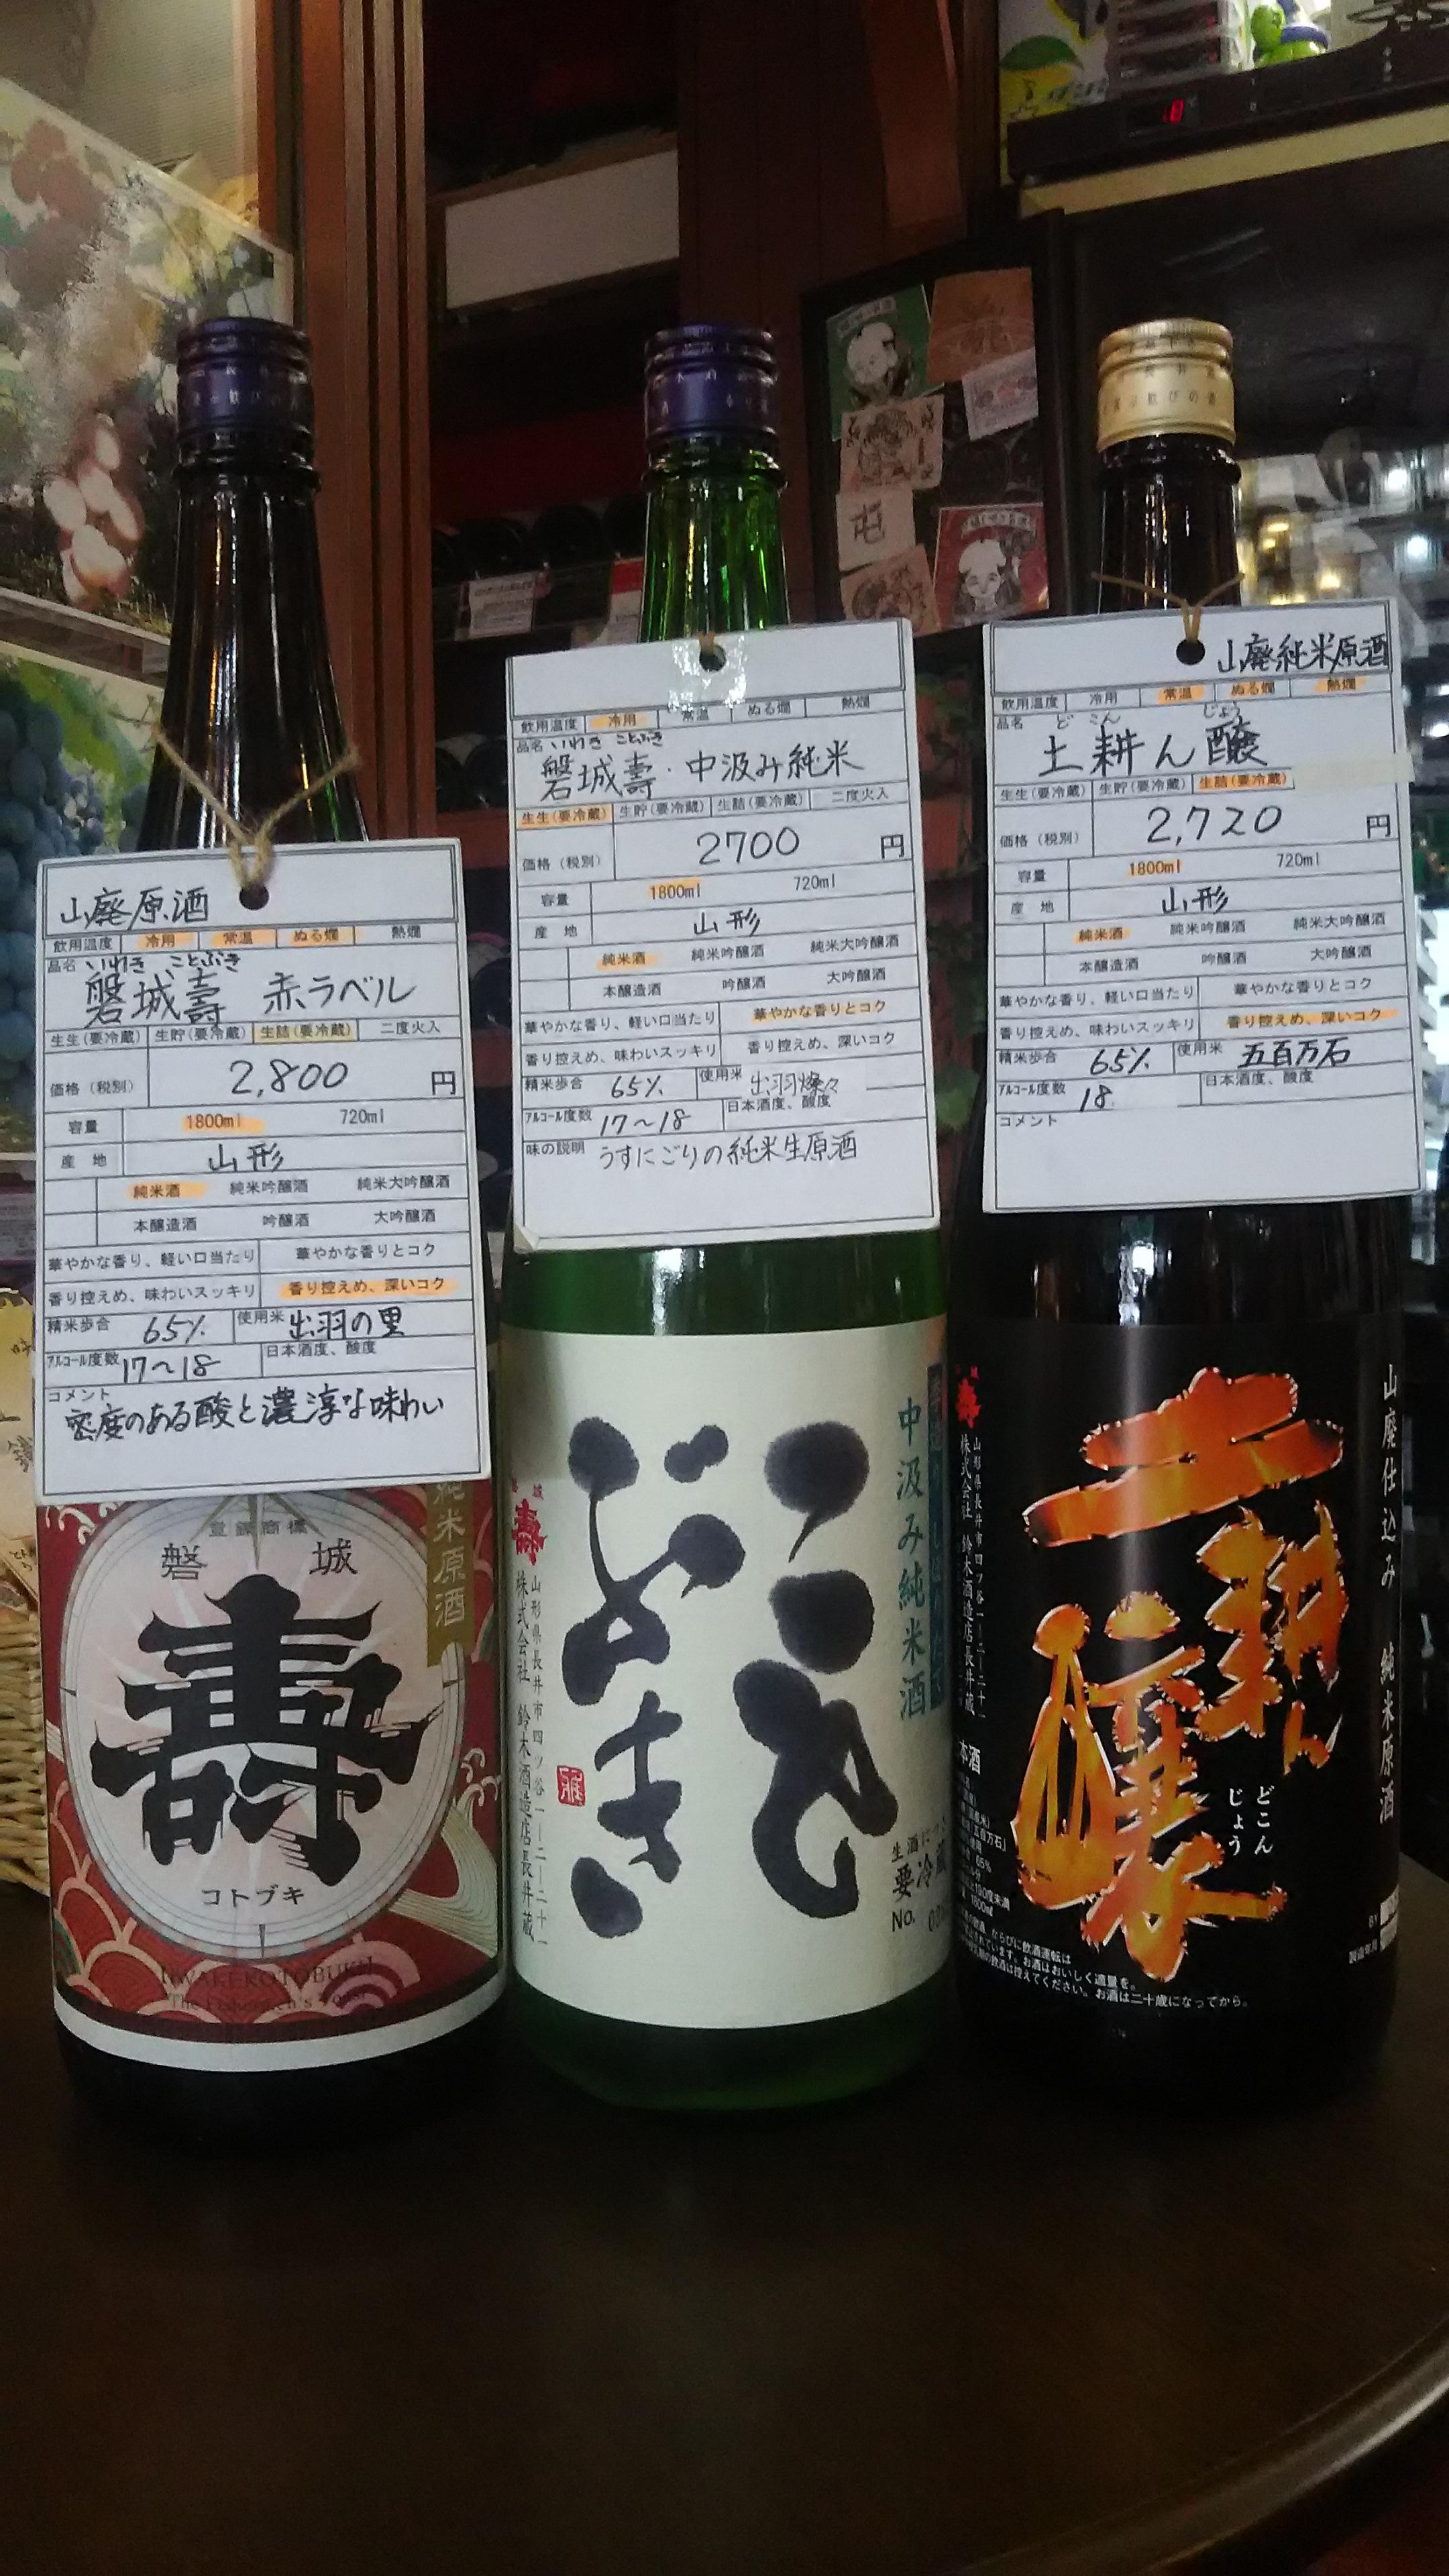 山廃原酒
飲用温度 冷用 常温 ぬる燗 熱燗
品名 いわき ことぶき
磐城壽 赤ラベル
生生(要冷蔵) 生貯(要冷蔵) 生詰(要冷蔵) 二度火入
価格(税別) 2,800 円
容量 1800ml 720ml
産 地 山形
純米酒 純米吟醸酒 純米大吟醸酒
本醸造酒 吟醸酒 大吟醸酒
華やかな香り、軽い口当たり 華やかな香りとコク
香り控えめ、味わいスッキリ 香り控えめ、深いコク
精米歩合 65% 使用米 出羽の里
アルコール度数 17〜18 日本酒度、酸度
コメント
密度のある酸と濃淳な味わい
純米原酒
登録商標
磐城
壽
コトブキ
飲用温度 冷用 常温 ぬる燗 熱燗
品名 いわき ことぶき
磐城壽・中汲み純米
生生(要冷蔵) 生貯(要冷蔵) 生詰(要冷蔵) 二度火入
価格(税別) 2700 円
容量 1800ml 720ml
産 地 山形
純米酒 純米吟醸酒 純米大吟醸酒
本醸造酒 吟醸酒 大吟醸酒
華やかな香り、軽い口当たり 華やかな香りとコク
香り控えめ、味わいスッキリ 香り控えめ、深いコク
精米歩合 65% 使用米 出羽燦々
アルコール度数 17〜18 日本酒度、酸度
味の説明 うすにごりの純米生原酒
中汲み純米酒
ことぶき
壽
山形県長井市四ツ谷一ー二ー二十一
株式会社 鈴木酒造店長井蔵
要冷蔵
No.
山廃純米原酒
飲用温度 冷用 常温 ぬる燗 熱燗
品名 ど こん じょう
土耕ん醸
生生(要冷蔵) 生貯(要冷蔵) 生詰(要冷蔵)
価格(税別) 2,720 円
容量 1800ml 720ml
産 地 山形
純米酒 純米吟醸酒 純米大吟醸酒
本醸造酒 吟醸酒 大吟醸酒
華やかな香り、軽い口当たり 華やかな香りとコク
香り控えめ、味わいスッキリ 香り控えめ、深いコク
精米歩合 65% 使用米 五百万石
アルコール度数 18 日本酒度、酸度
コメント
山廃仕込み 純米原酒
土耕ん醸
どこん
じょう
壽
山形県長井市四ツ谷一ー二ー二十一
株式会社 鈴木酒造店長井蔵
お酒は二十歳になってから。